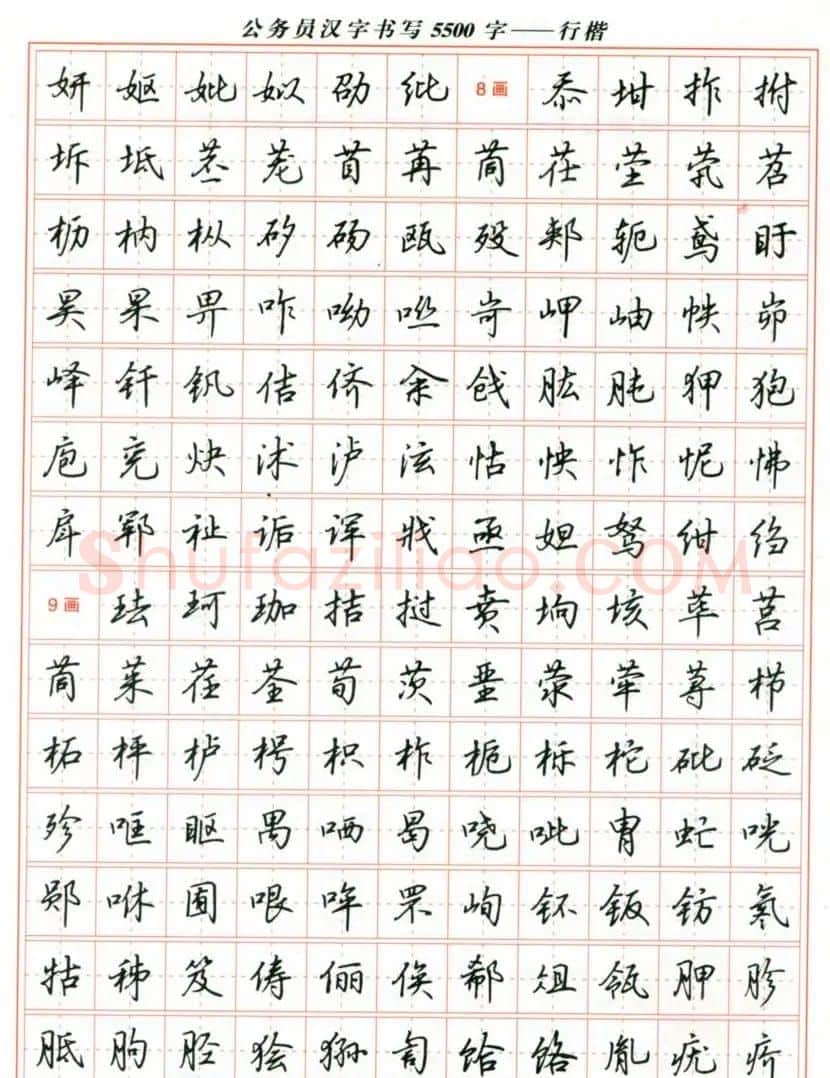 公务员汉字书写5500字——行楷
妍 妪 妣 姒 劭 纰 8画 忝 坩 拃 拊
坼 坻 苤 茏 苜 苒 茼 茌 茔 茕 苕
枥 枘 枞 矽 砀 瓯 殁 郏 轭 鸢 盱
昊 杲 畀 咋 呦 咝 岢 岬 岫 帙 峁
峄 钎 钒 佶 侪 汆 饯 肱 肫 狎 狍
庖 兖 炔 沭 泸 泫 怙 怏 怍 怩 怫
戽 郓 祉 诟 诨 戕 亟 妲 驽 绀 绉
9画 珐 珂 珈 拮 挝 贲 垧 垓 荜 莒
茼 茱 荏 荃 荀 茨 垩 荥 荦 荨 栉
柘 枰 栌 枵 枳 柞 栀 柝 柁 砒 砭
殄 哐 眍 禺 哂 曷 哓 呲 胄 虻 咣
郧 咻 囿 哏 哞 罘 峋 钚 钣 钫 氡
牯 秭 笈 俦 俪 俟 郗 俎 瓴 胛 胗
胝 朐 胫 狯 狲 訇 饴 饹 胤 疣 疥
Shufaziliao.COM